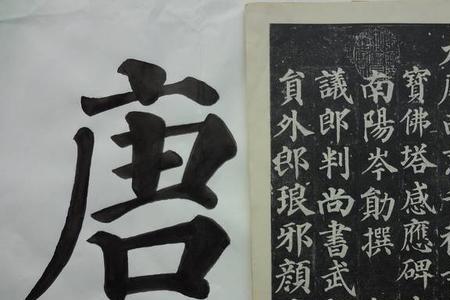 唐
寶佛塔感應碑
南陽岑勛撰
議郎判尚書武
貟外郎琅邪顏